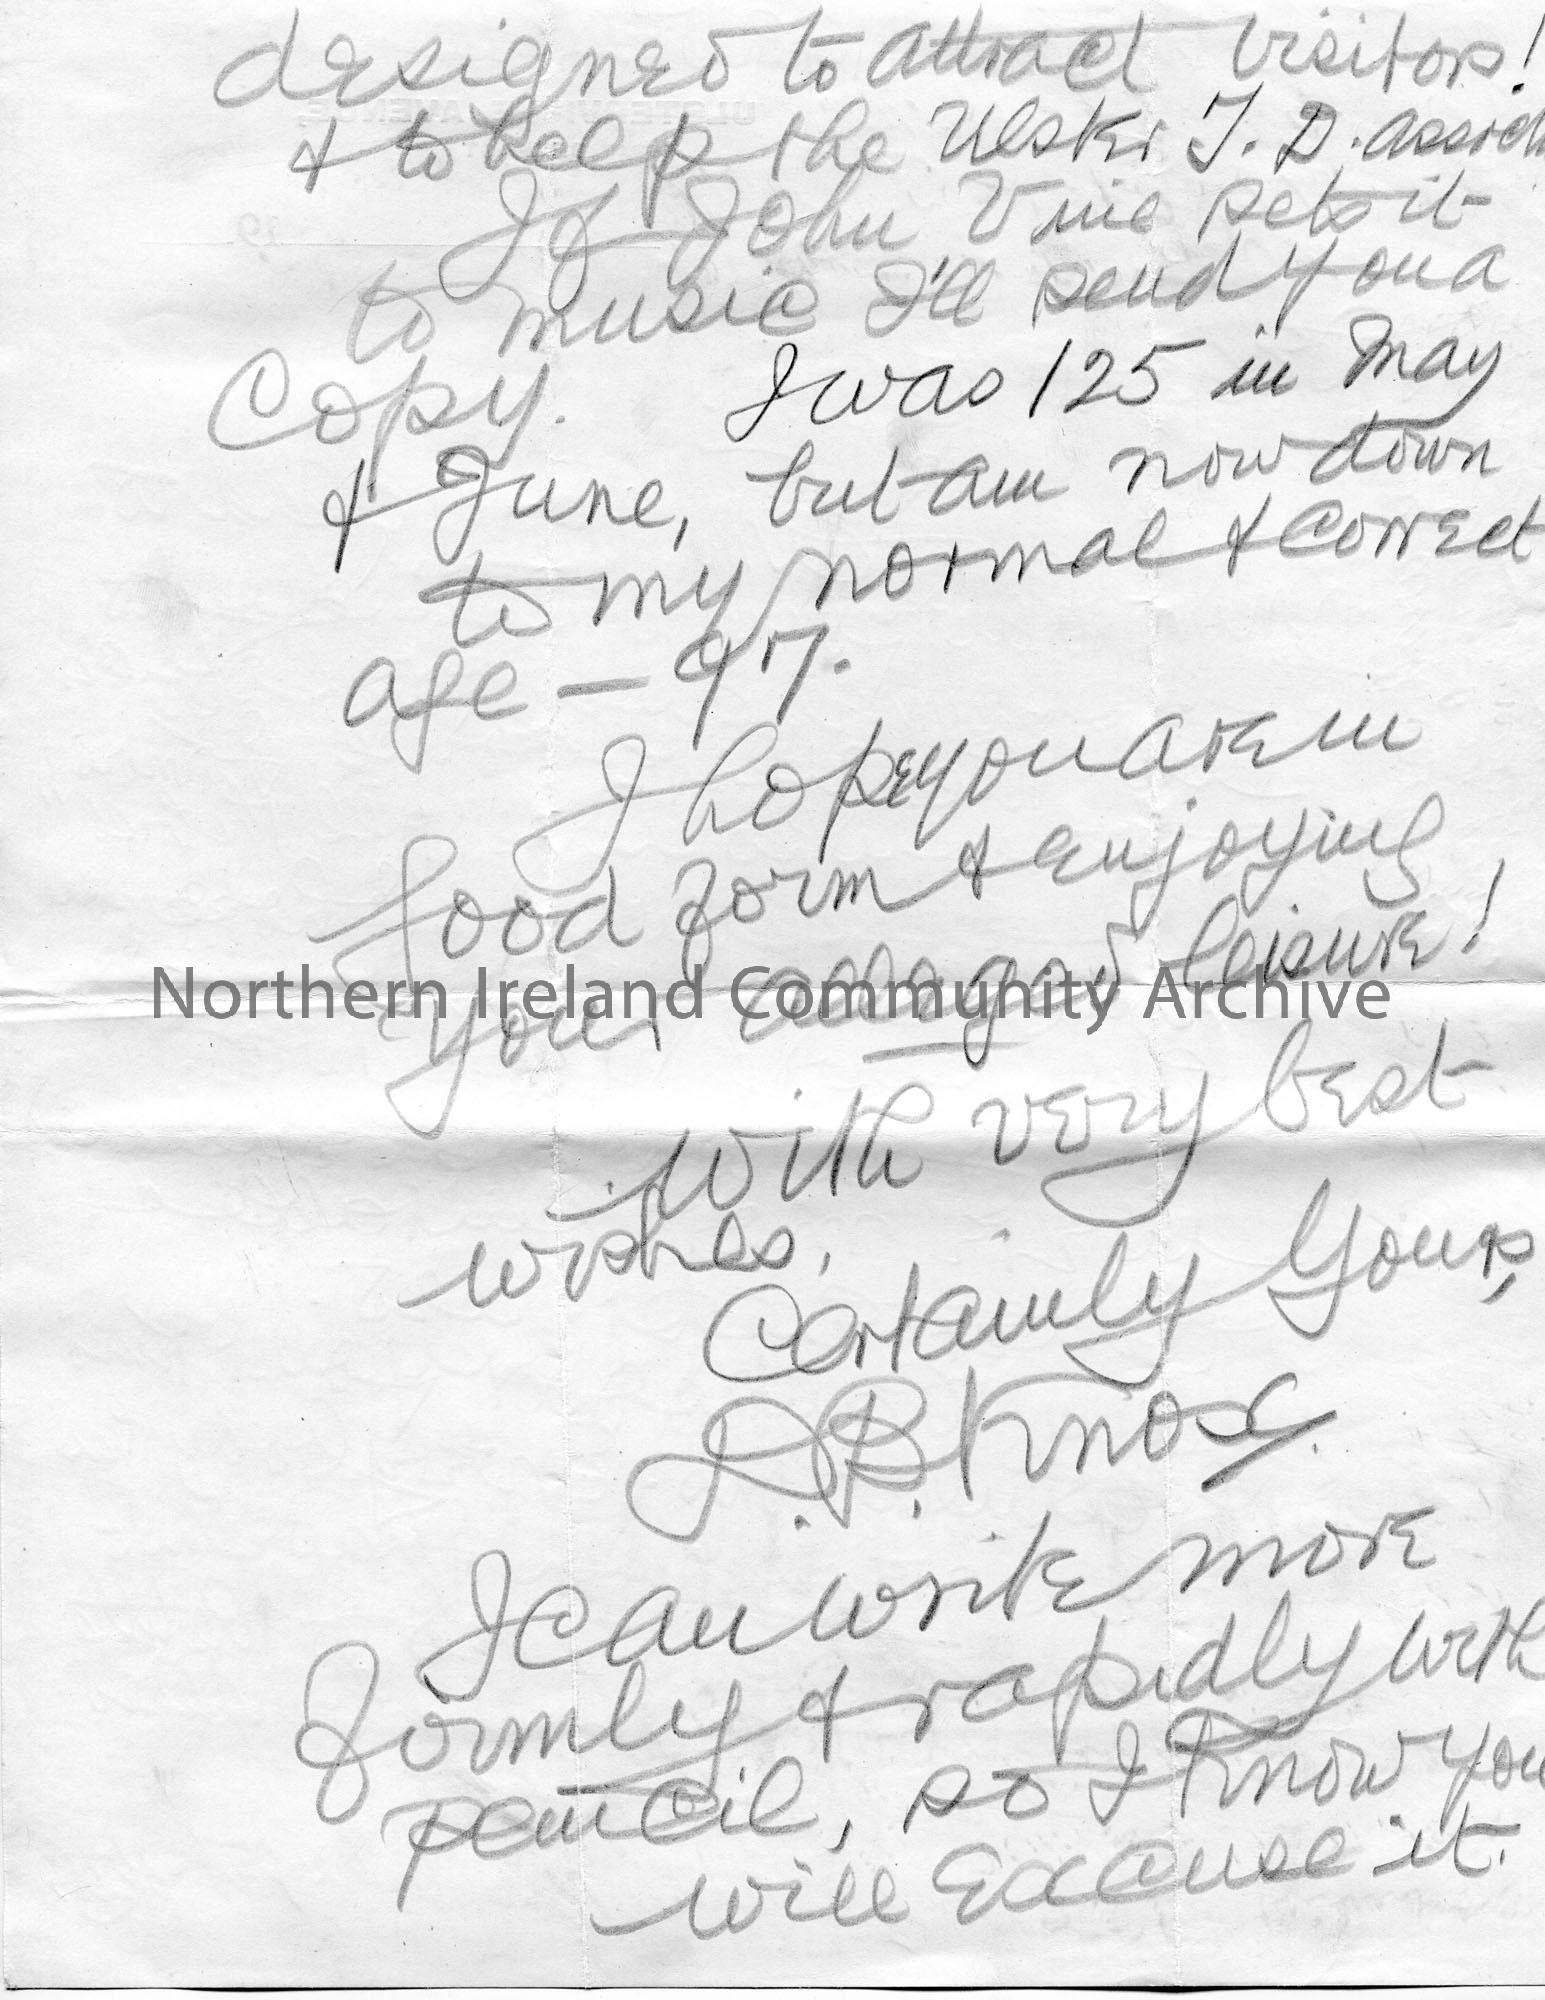 designed to attract visitors!
& to help the Ulster T. D. Associ
If John Vine sets it
to music I'll send you a
Copy. I was 125 in May
& June, but am now down
to my normal & correct
age — 97.
I hope you are in
good form & enjoying
your leisure!
Northern Ireland Community Archive
With very best
wishes,
Certainly Yours,
D. B. Knox.
I can write more
formly & rapidly with
pencil, so I know you
will excuse it.